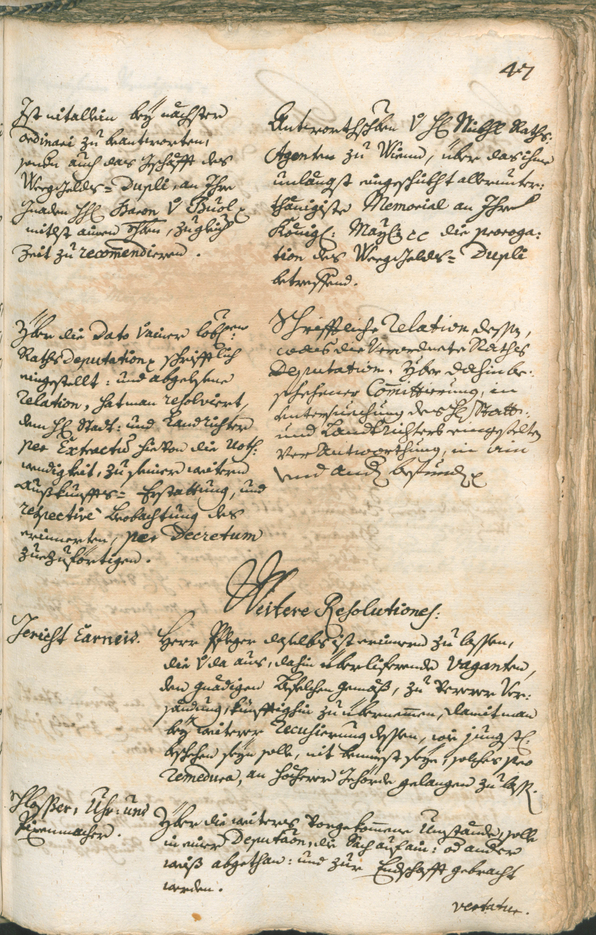 47
Ist nit allein bey nächsten
ordinari zu beantworten,
sonder auch das Geschäfft des
Weeggelds= Dupli an Ihre
Gnaden H: Baron v Buol
mitlst aines zugleich
Zeit zu recommendieren.
Antwortschreiben V H: Raths
Agenten zu Wienn, über das ihme
unlängst eingeschickht allerunter:
thänigiste Memorial an Ihre
Königl: Mayt: cc die proroga:
tion des Weeggelds= Dupli
betreffend.
Über die Dato von einer löbl:
Raths Deputation schrifftlich
eingestellt: und abgelesene
Relation, hat man resolviert,
dem H: Statt: und Landrichter
per Extractus hievon die Noth:
wendigkeit, zu seiner weitern
Auskunffts= Erstattung, und
respectivè Beobachtung des
erinnerten, per Decretum
zuezufertigen.
Schrifftliche Relation dessen,
was die Verordnete Raths
Deputation, über dahin be:
schehener Comittierung, in
Untersuchung des H: Statt:
und Landtrichters eingestelte
Verantworthung, in ain
und andern befunden
Weitere Resolutiones:
Gericht Carneid.
Herr Pfleger daselbst ist erinnern zu lassen,
die v da aus, dahin überlifferende Vaganten,
den gnädigen Befelchen gemäß, zu Ver:
künfftighin zu übernemmen, damit man
bey weiterer Recusierung dessen, wie jüngst
beschehen seyn solle, nit bemüsst seye, solches pro
remedura, an höhere Behörde gelangen zu lassen.
Schlosser, Uhr: und
Pixenmacher.
Über die weiters vorgekommene Umstände, solle
in einer Deputation, die Sach auf ain: od andere
weiß abgethan: und zur Endschafft gebracht
werden.
vertatur.